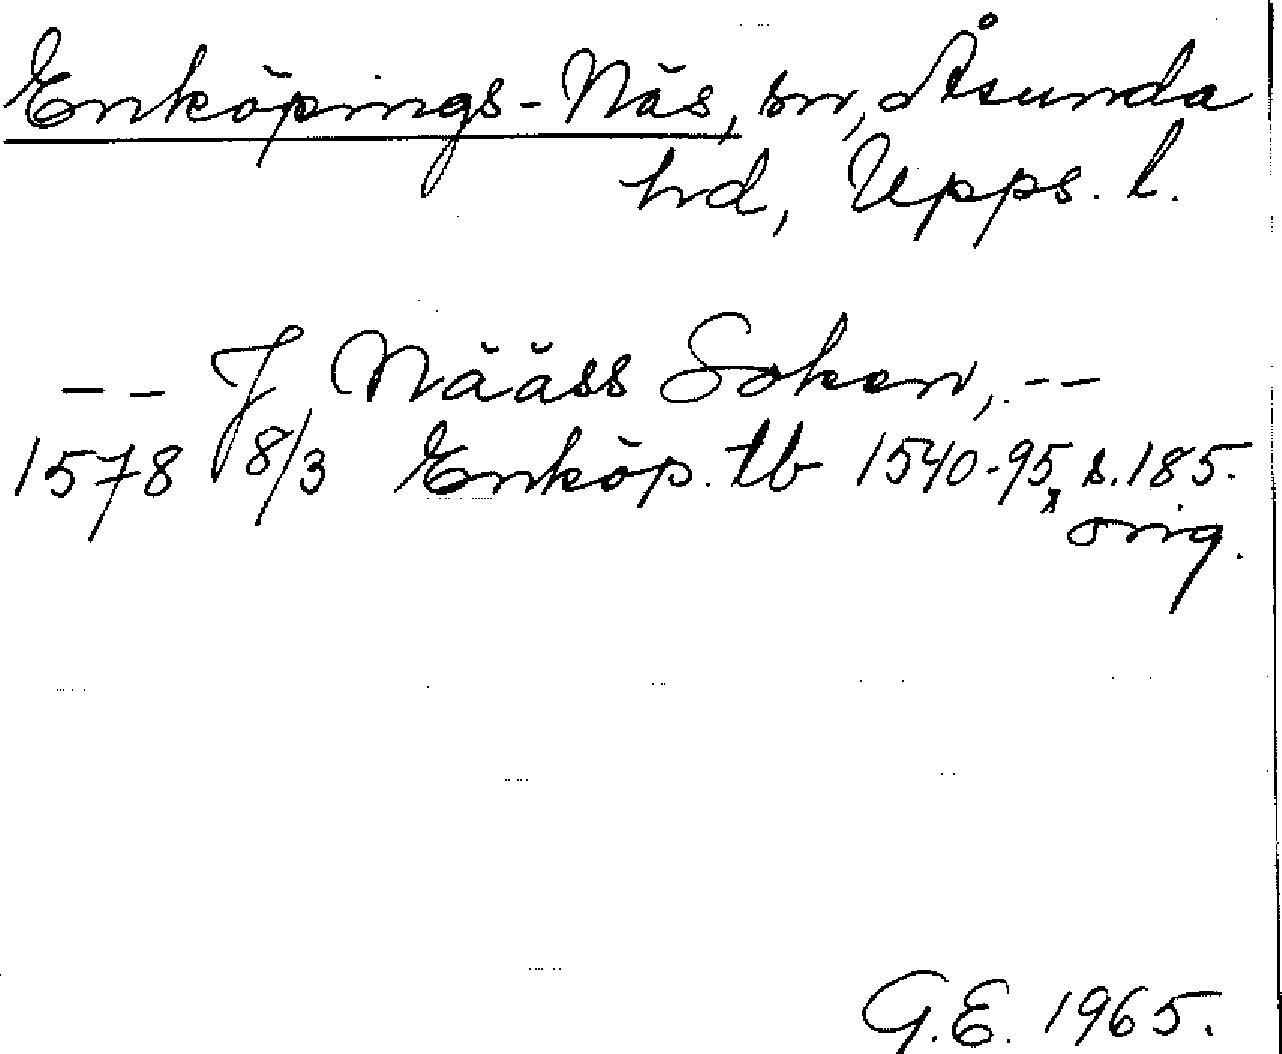 Enköpings-Näs, sn, Åsunda
hd, Upps. l.
-- J Nääss Soken, --
1578 8/3 Enköp. tb 1540-95, s. 185.
orig.
G.E. 1965.